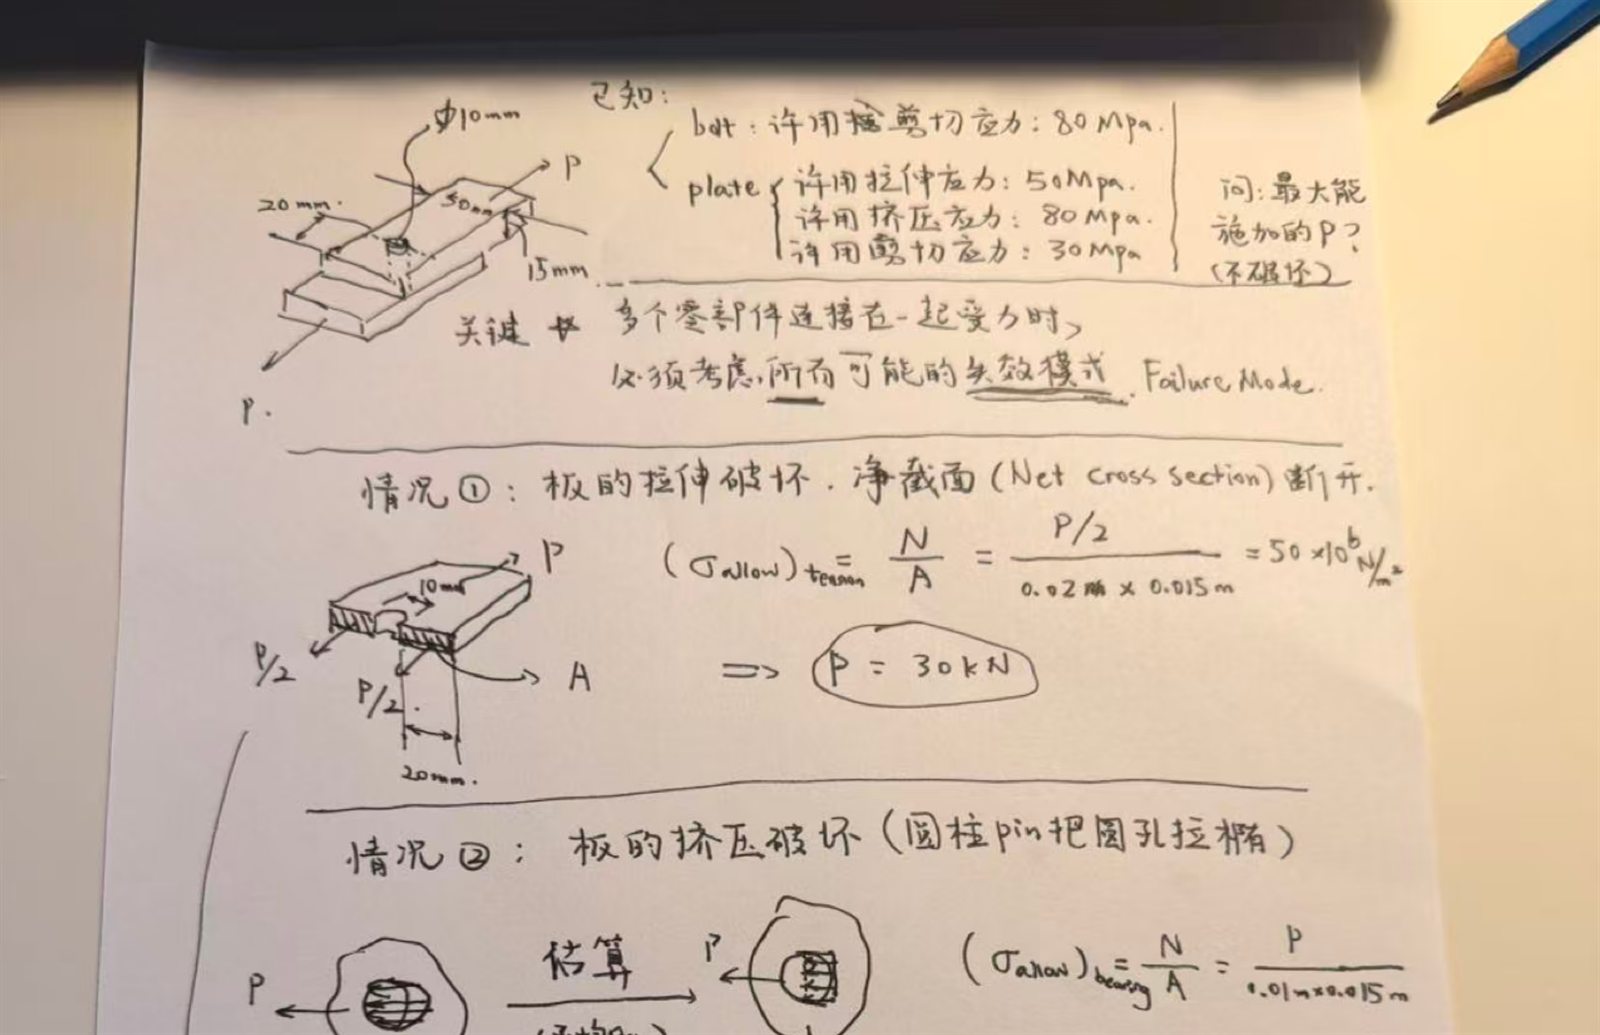 已知:
φ10mm
bolt: 许用剪切应力: 80Mpa.
P
20mm.
50mm
plate 许用拉伸应力: 50Mpa.
许用挤压应力: 80Mpa.
许用剪切应力: 30Mpa
问: 最大能
施加的P?
(不破坏)
15mm
关键
多个零部件连接在一起受力时,
必须考虑,所有可能的失效模式. Failure Mode.
P.
情况①: 板的拉伸破坏. 净截面 (Net cross section) 断开.
P
10mm
(σallow)tension = N/A = P/2 / 0.02m × 0.015m = 50×10⁶ N/m²
P/2
P/2.
A
⇒ P = 30kN
20mm.
情况②: 板的挤压破坏 (圆柱pin把圆孔拉椭)
P
估算
P
(σallow)bearing = N/A = P / 0.01m×0.015m